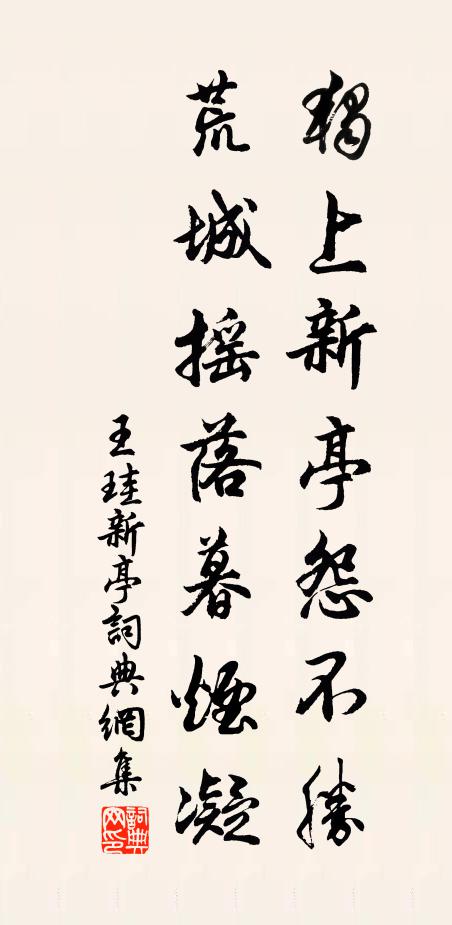 獨上新亭怨不勝
荒城摇落暮煙凝
王珪新亭詞典網集
詞典網印